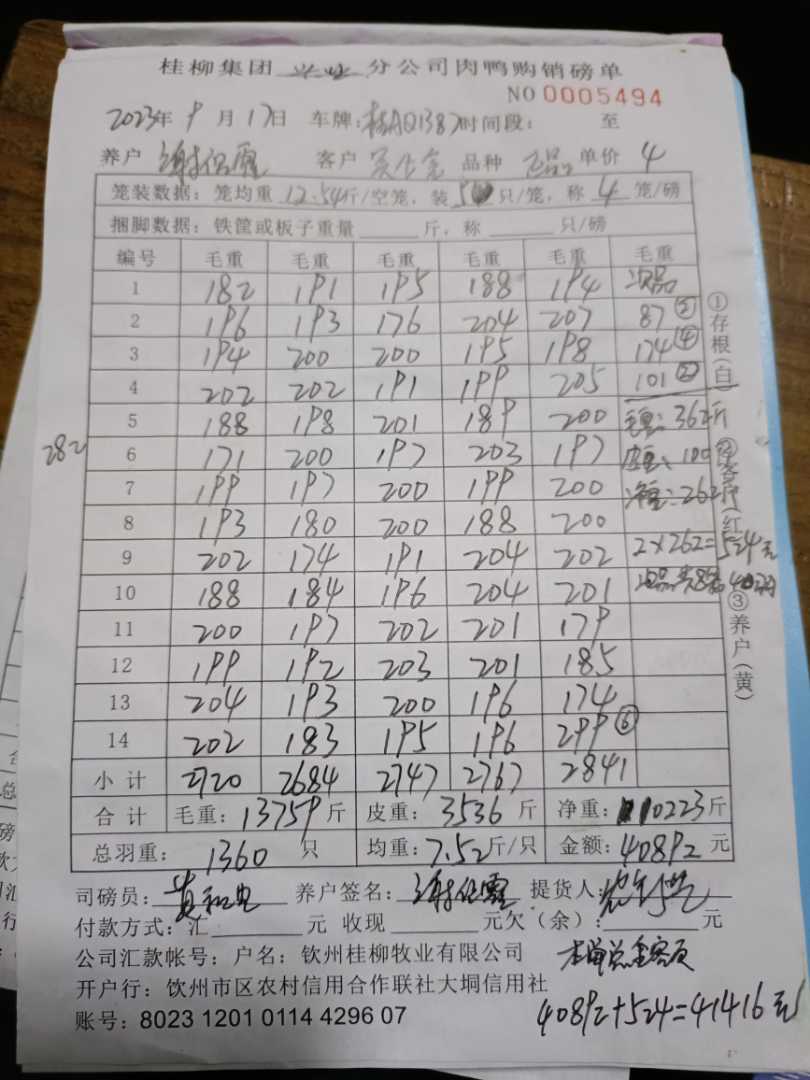 桂柳集团 兴业 分公司肉鸭购销磅单
NO 0005494
2023年 9月 17日 车牌: 桂AQ1387 时间段: 至
养户 谢 客户 品种 正品 单价 4
笼装数据: 笼均重 12.54斤/空笼, 装 5 只/笼, 称 4 笼/磅
捆脚数据: 铁筐或板子重量 斤, 称 只/磅
编号 毛重 毛重 毛重 毛重 毛重 毛重
1 182 191 195 188 194 次品
2 196 193 176 204 207 87 ⑤
3 194 200 200 195 198 174 ④
4 202 202 191 199 205 101 ②
5 188 198 201 189 200 毛重: 362斤
282
6 171 200 197 203 197 皮重: 100
7 199 197 200 199 200 净重: 262斤
8 193 180 200 188 200
9 202 174 191 204 202 2×262=524元
10 188 184 196 204 201 次品
11 200 197 202 201 179
12 199 192 203 201 185
13 204 193 200 196 174
14 202 183 195 196 299 ⑥
小计 2720 2684 2747 2767 2841
合计 毛重: 13759 斤 皮重: 3536 斤 净重: 10223斤
总羽重: 1360 只 均重: 7.52斤/只 金额: 40892 元
司磅员: 黄 养户签名: 谢 提货人:
付款方式: 汇 元 收现 元欠(余): 元
公司汇款帐号: 户名: 钦州桂柳牧业有限公司 本单总金额页
开户行: 钦州市区农村信用合作联社大垌信用社
账号: 8023 1201 0114 4296 07
40892+524=41416元
①存根(白)
②客户(红)
③养户(黄)